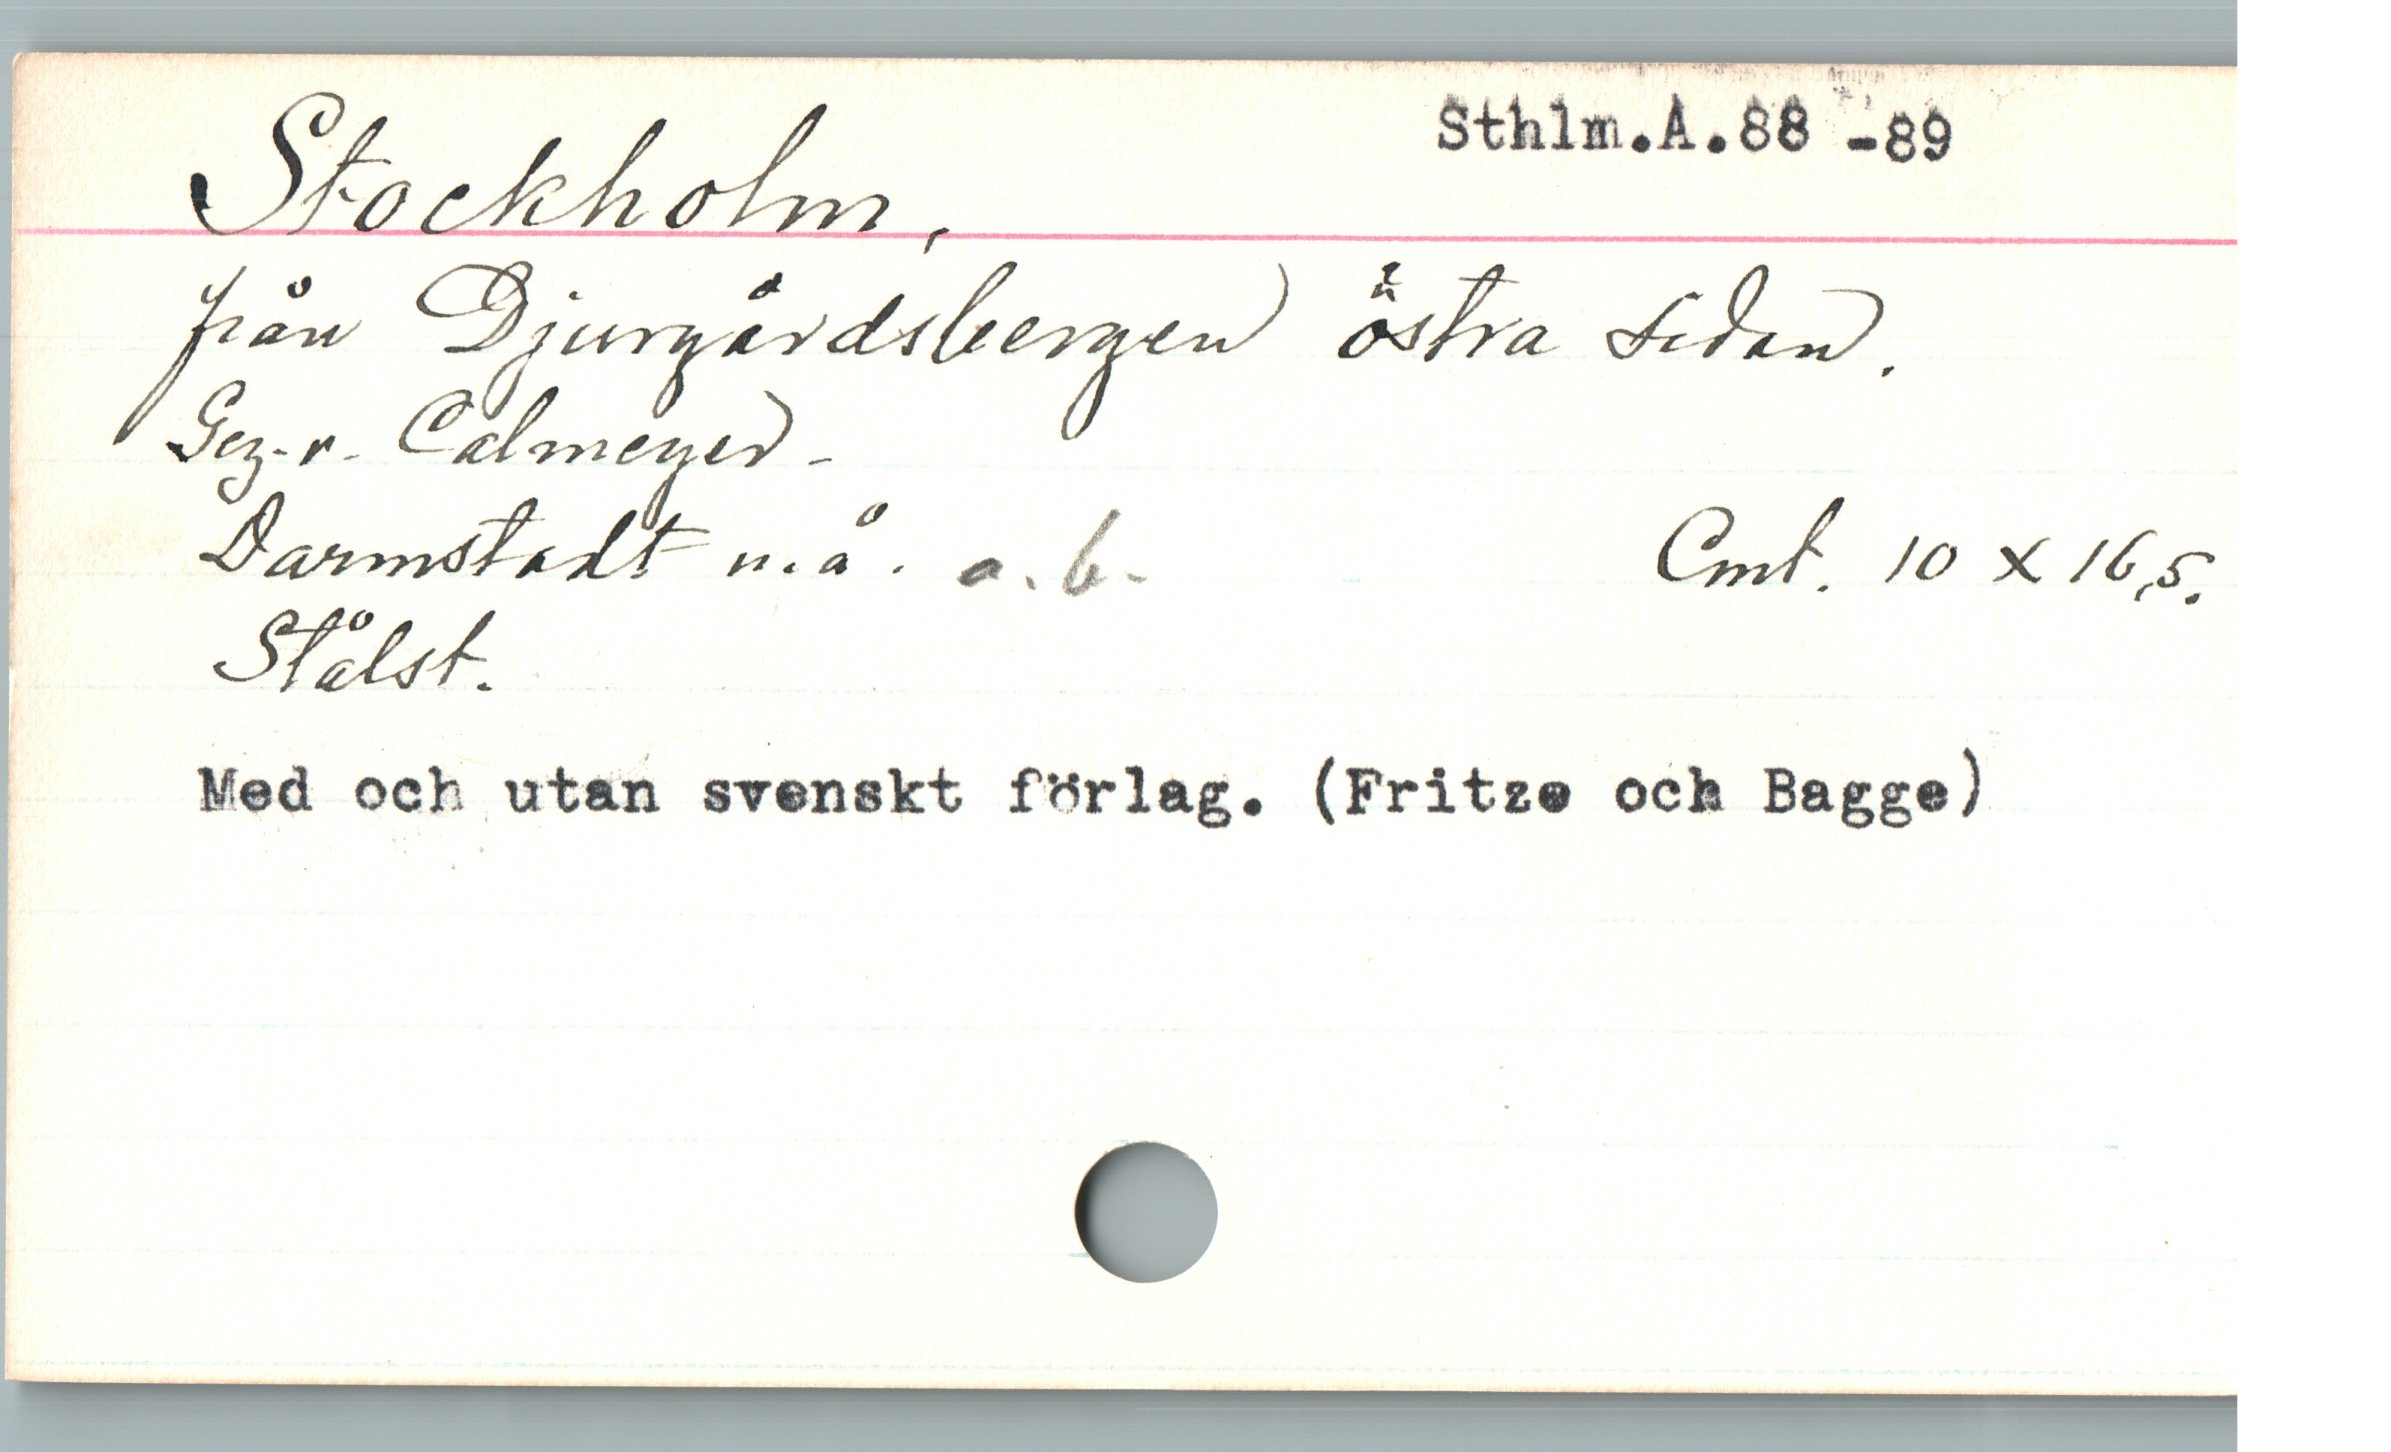 Sthlm.A.88 -89
Stockholm,
från Djurgårdsbergen östra sidan.
Gez. v. Calmeyer.
Darmstadt u.å. a.b. Cmt. 10 x 16,5.
Stålst.
Med och utan svenskt förlag. (Fritze och Bagge)